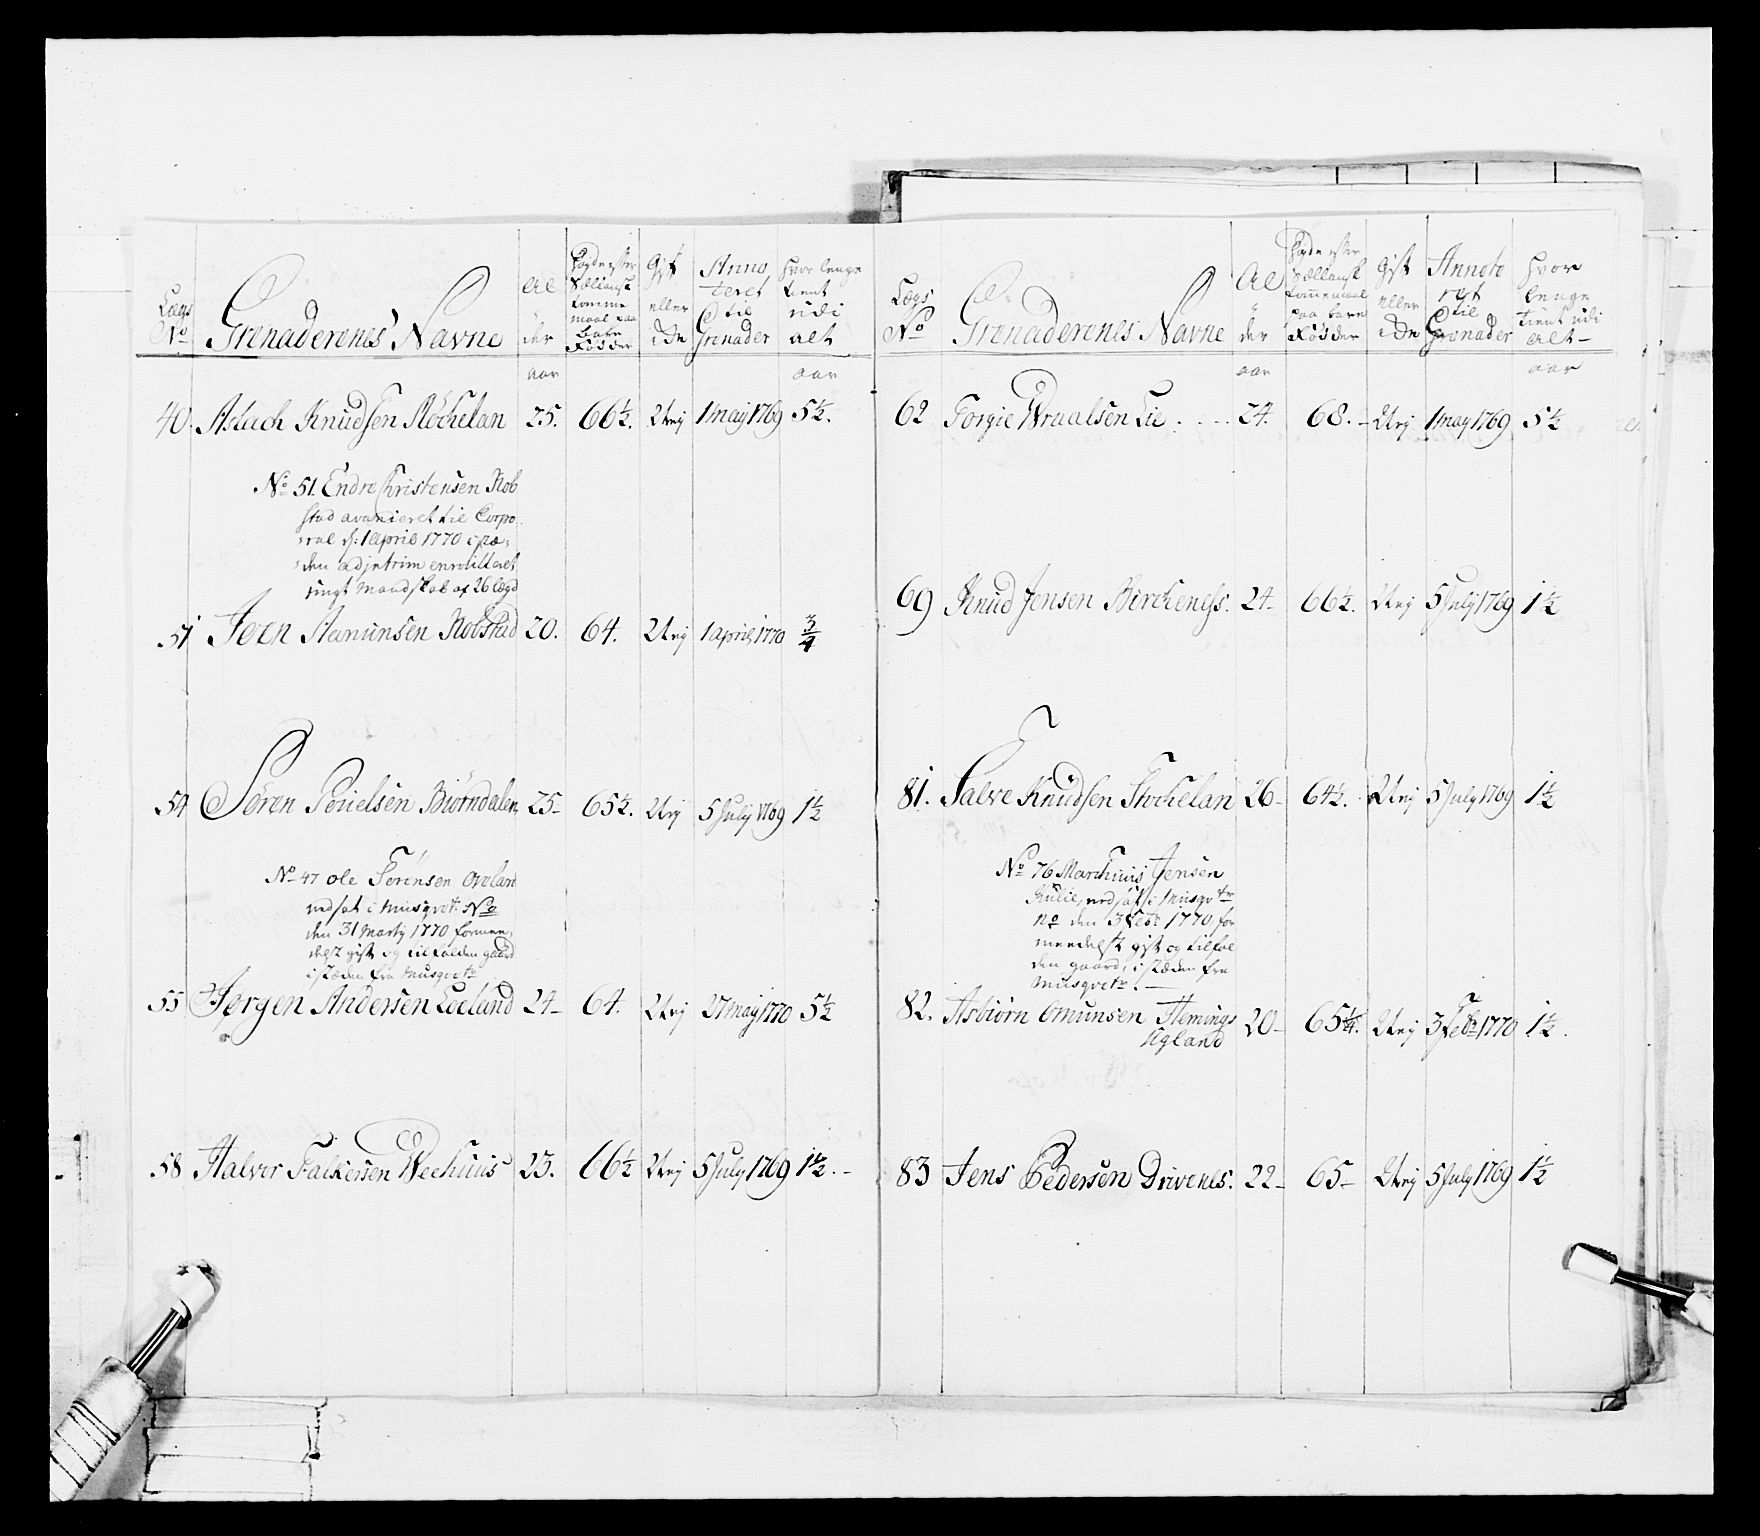 Lægs No Grenaderenes Navne Al der Høyde efter Siællansk tomme maal paa bare Fødder Gift eller Ede Anno teret til Grenader Hvor lenge tient udi alt
aar aar
40. Aslach Knudsen Røchelan 25. 66½. Urij 1 maij 1769 5½.
No 51. Endre Christensen Rob
stad avancieret til Corpo
ral d: 1 april 1770
den enroulleret
ungt Mandskab af 26 lægd
51 Joen Aanunsen Robstad 20. 64. Urij 1 april 1770 ¾
54 Søren Povelsen Biørndalen 25 65½. Urij 5 July 1769 1½
No 47 Ole Sørensen Oveland
nedsat i Musqvet: No
den 31 Martij 1770 formee
delst gift og tilfalden gaard
i stæden fra Musqvetr
55 Jørgen Andersen Loeland 24 64. Urij 27 maij 1770 5½
58 Halvor Falkersen Weehuus 23. 66½ Urij 5 July 1769 1½.
Lægs No Grenaderenes Navne Al der Høyde efter Siællansk tommemaal paa bare Fødder Gift eller Ede Annote ret til Grenader Hvor lenge tient udi alt
aar aar
62 Torgie Wraalsen Lie . . . . 24. 68. Urij 1 may 1769 5½
69 Knud Jensen Birchenes. 24 66½. Urij 5 July 1769 1½
81. Salve Knudsen Stochelan 26 64½. Urij 5 July 1769 1½
No 76 Marchuus Jensen
Kulie, nedsat i Musqvtr
No den 3 Febr 1770 for
meedelst gift og tilfal
den gaard, i stæden fra
Musqvetr.
82. Asbiørn Omunsen Flemings 20 65¼. Urij 3 Febr 1770 1½.
Agland
83 Jens Pedersen Drivenes. 22 65 Urij 5 July 1769 1½